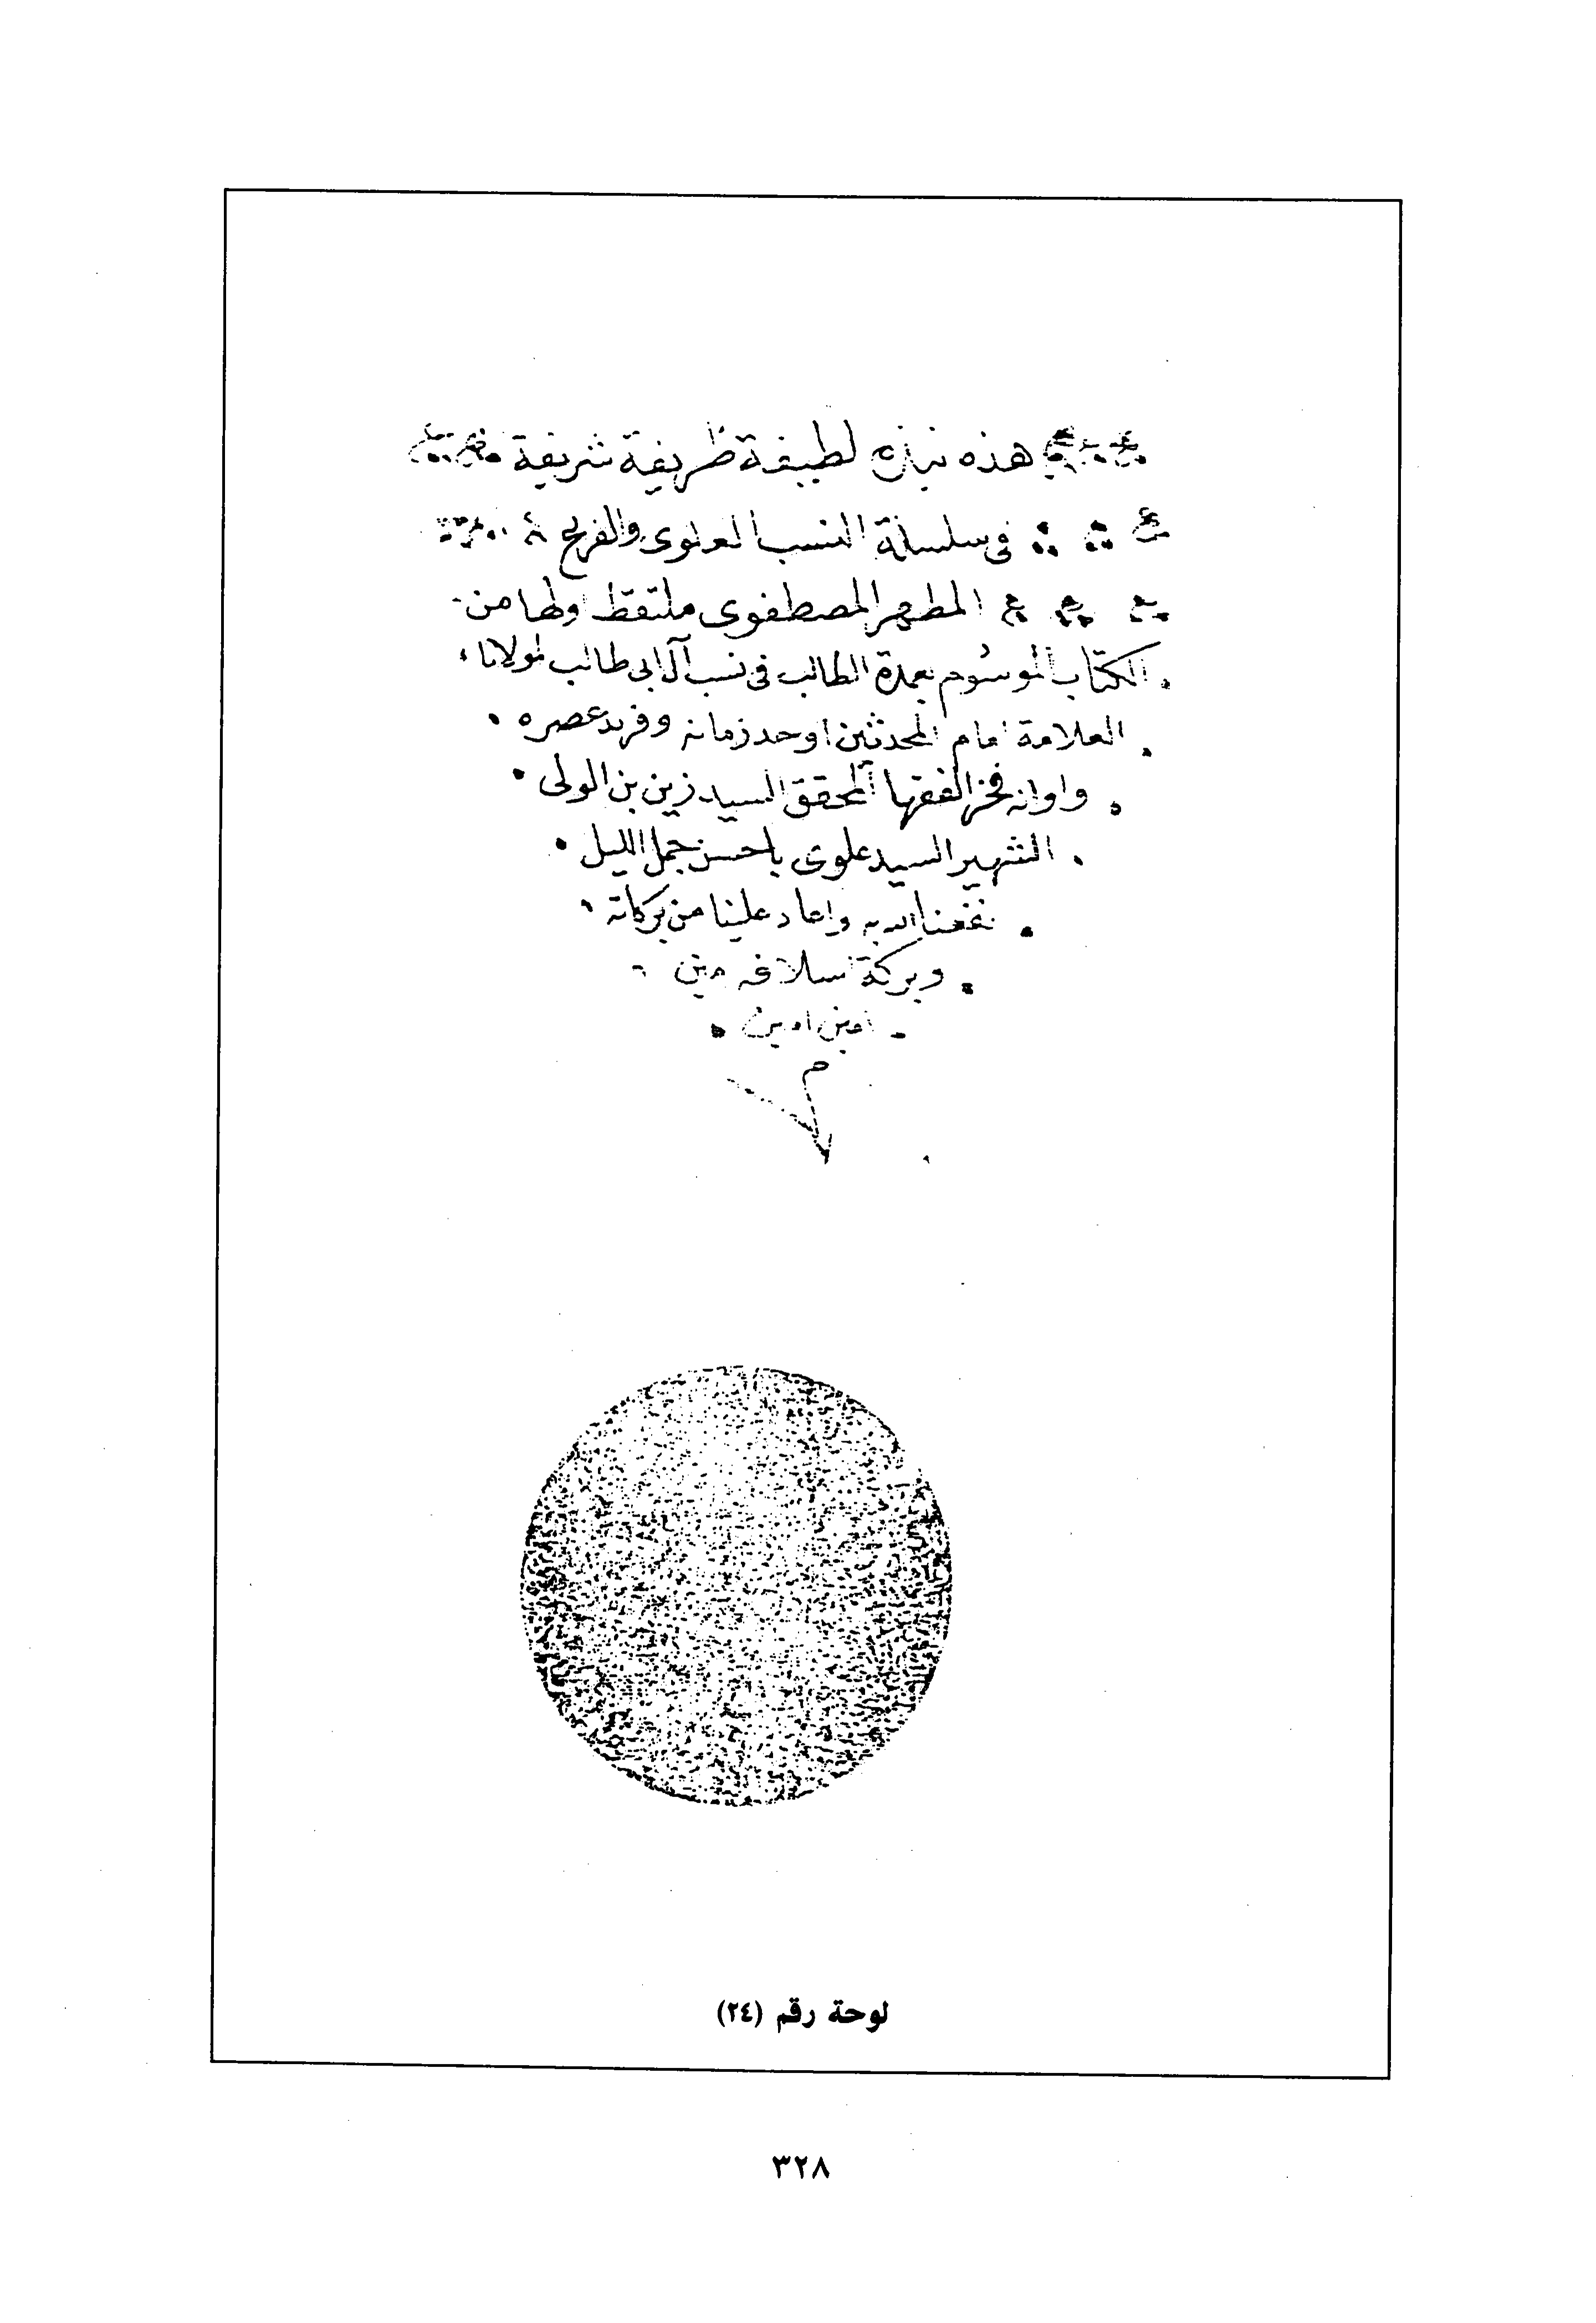 هذه نبذة لطيفة ظريفة شريفة
في سلسلة النسب العلوي والفرع
المطهر المصطفوى ملتقط اولها من
الكتاب الموسُوم بعمدة الطالب في نسب آل ابي طالب لمولانا
العلامة امام المحدثين اوحد زمانه وفريد عصره
واوانه فخر الفقها المحقق السيد زين بن الولى
الشهير السيد علوى باحسن جمل الليل
نفعنا الله به واعاد علينا من بركاته
وبركة اسلافه
امين امين
م
لوحة رقم (٢٤)
٣٢٨